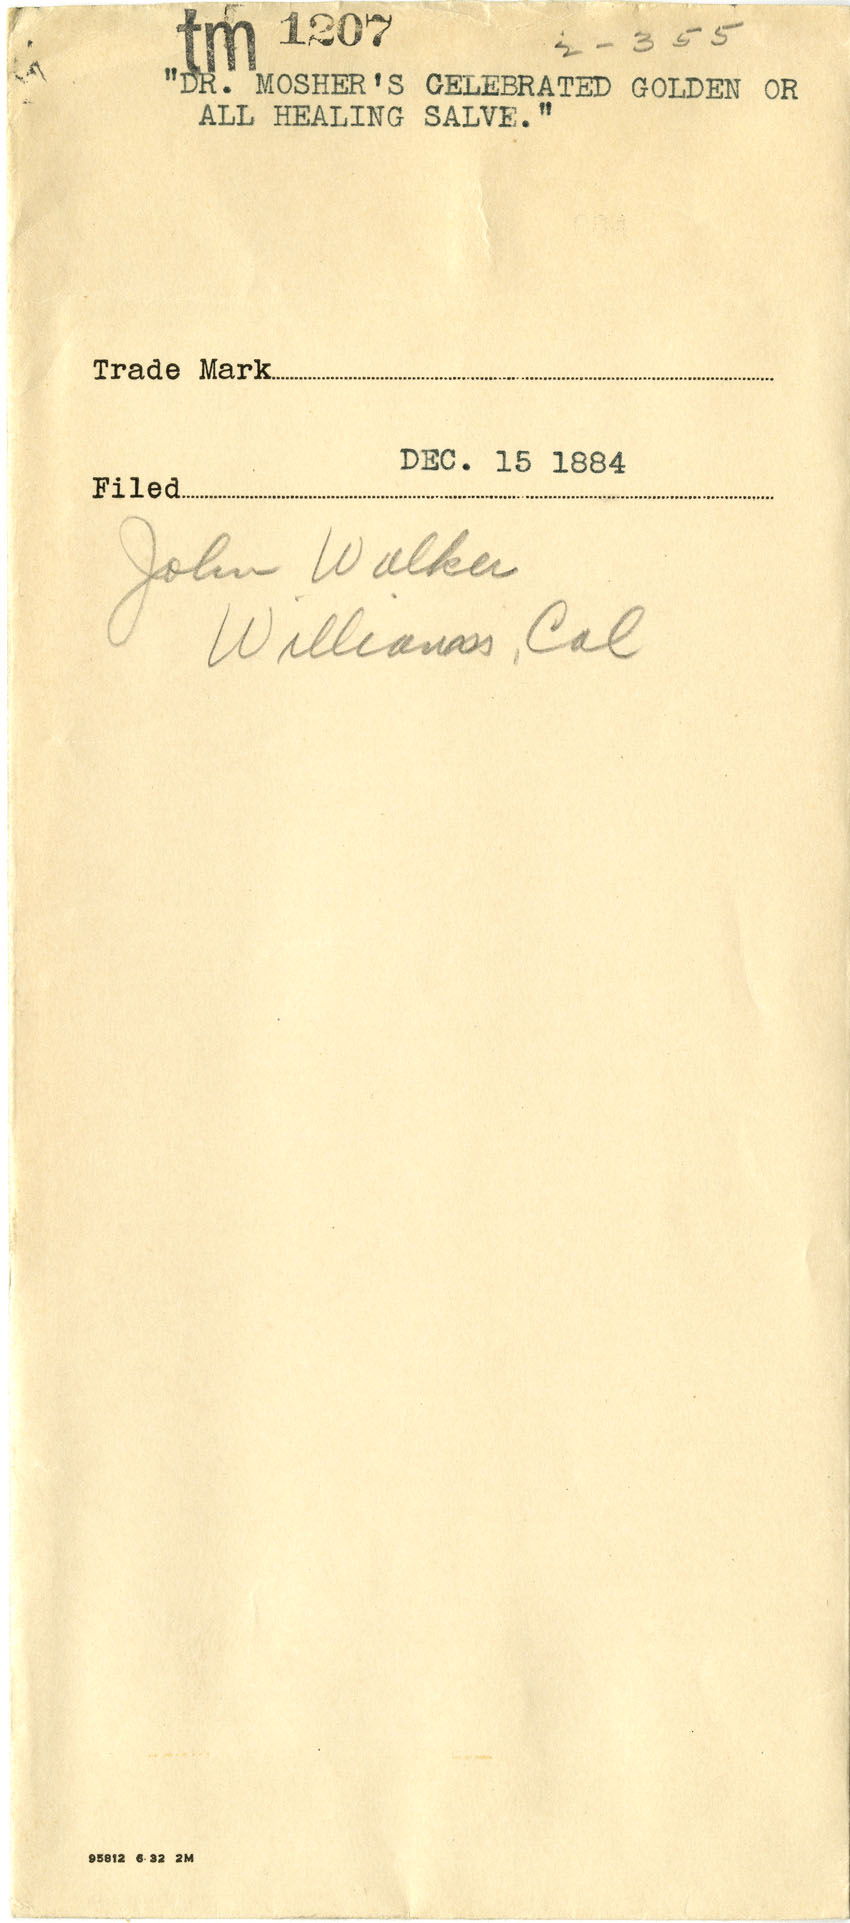 tm 1207 2-355
"DR. MOSHER'S CELEBRATED GOLDEN OR
ALL HEALING SALVE."
Trade Mark
DEC. 15 1884
Filed
John Walker
Williams, Cal
95812 6-32 2M